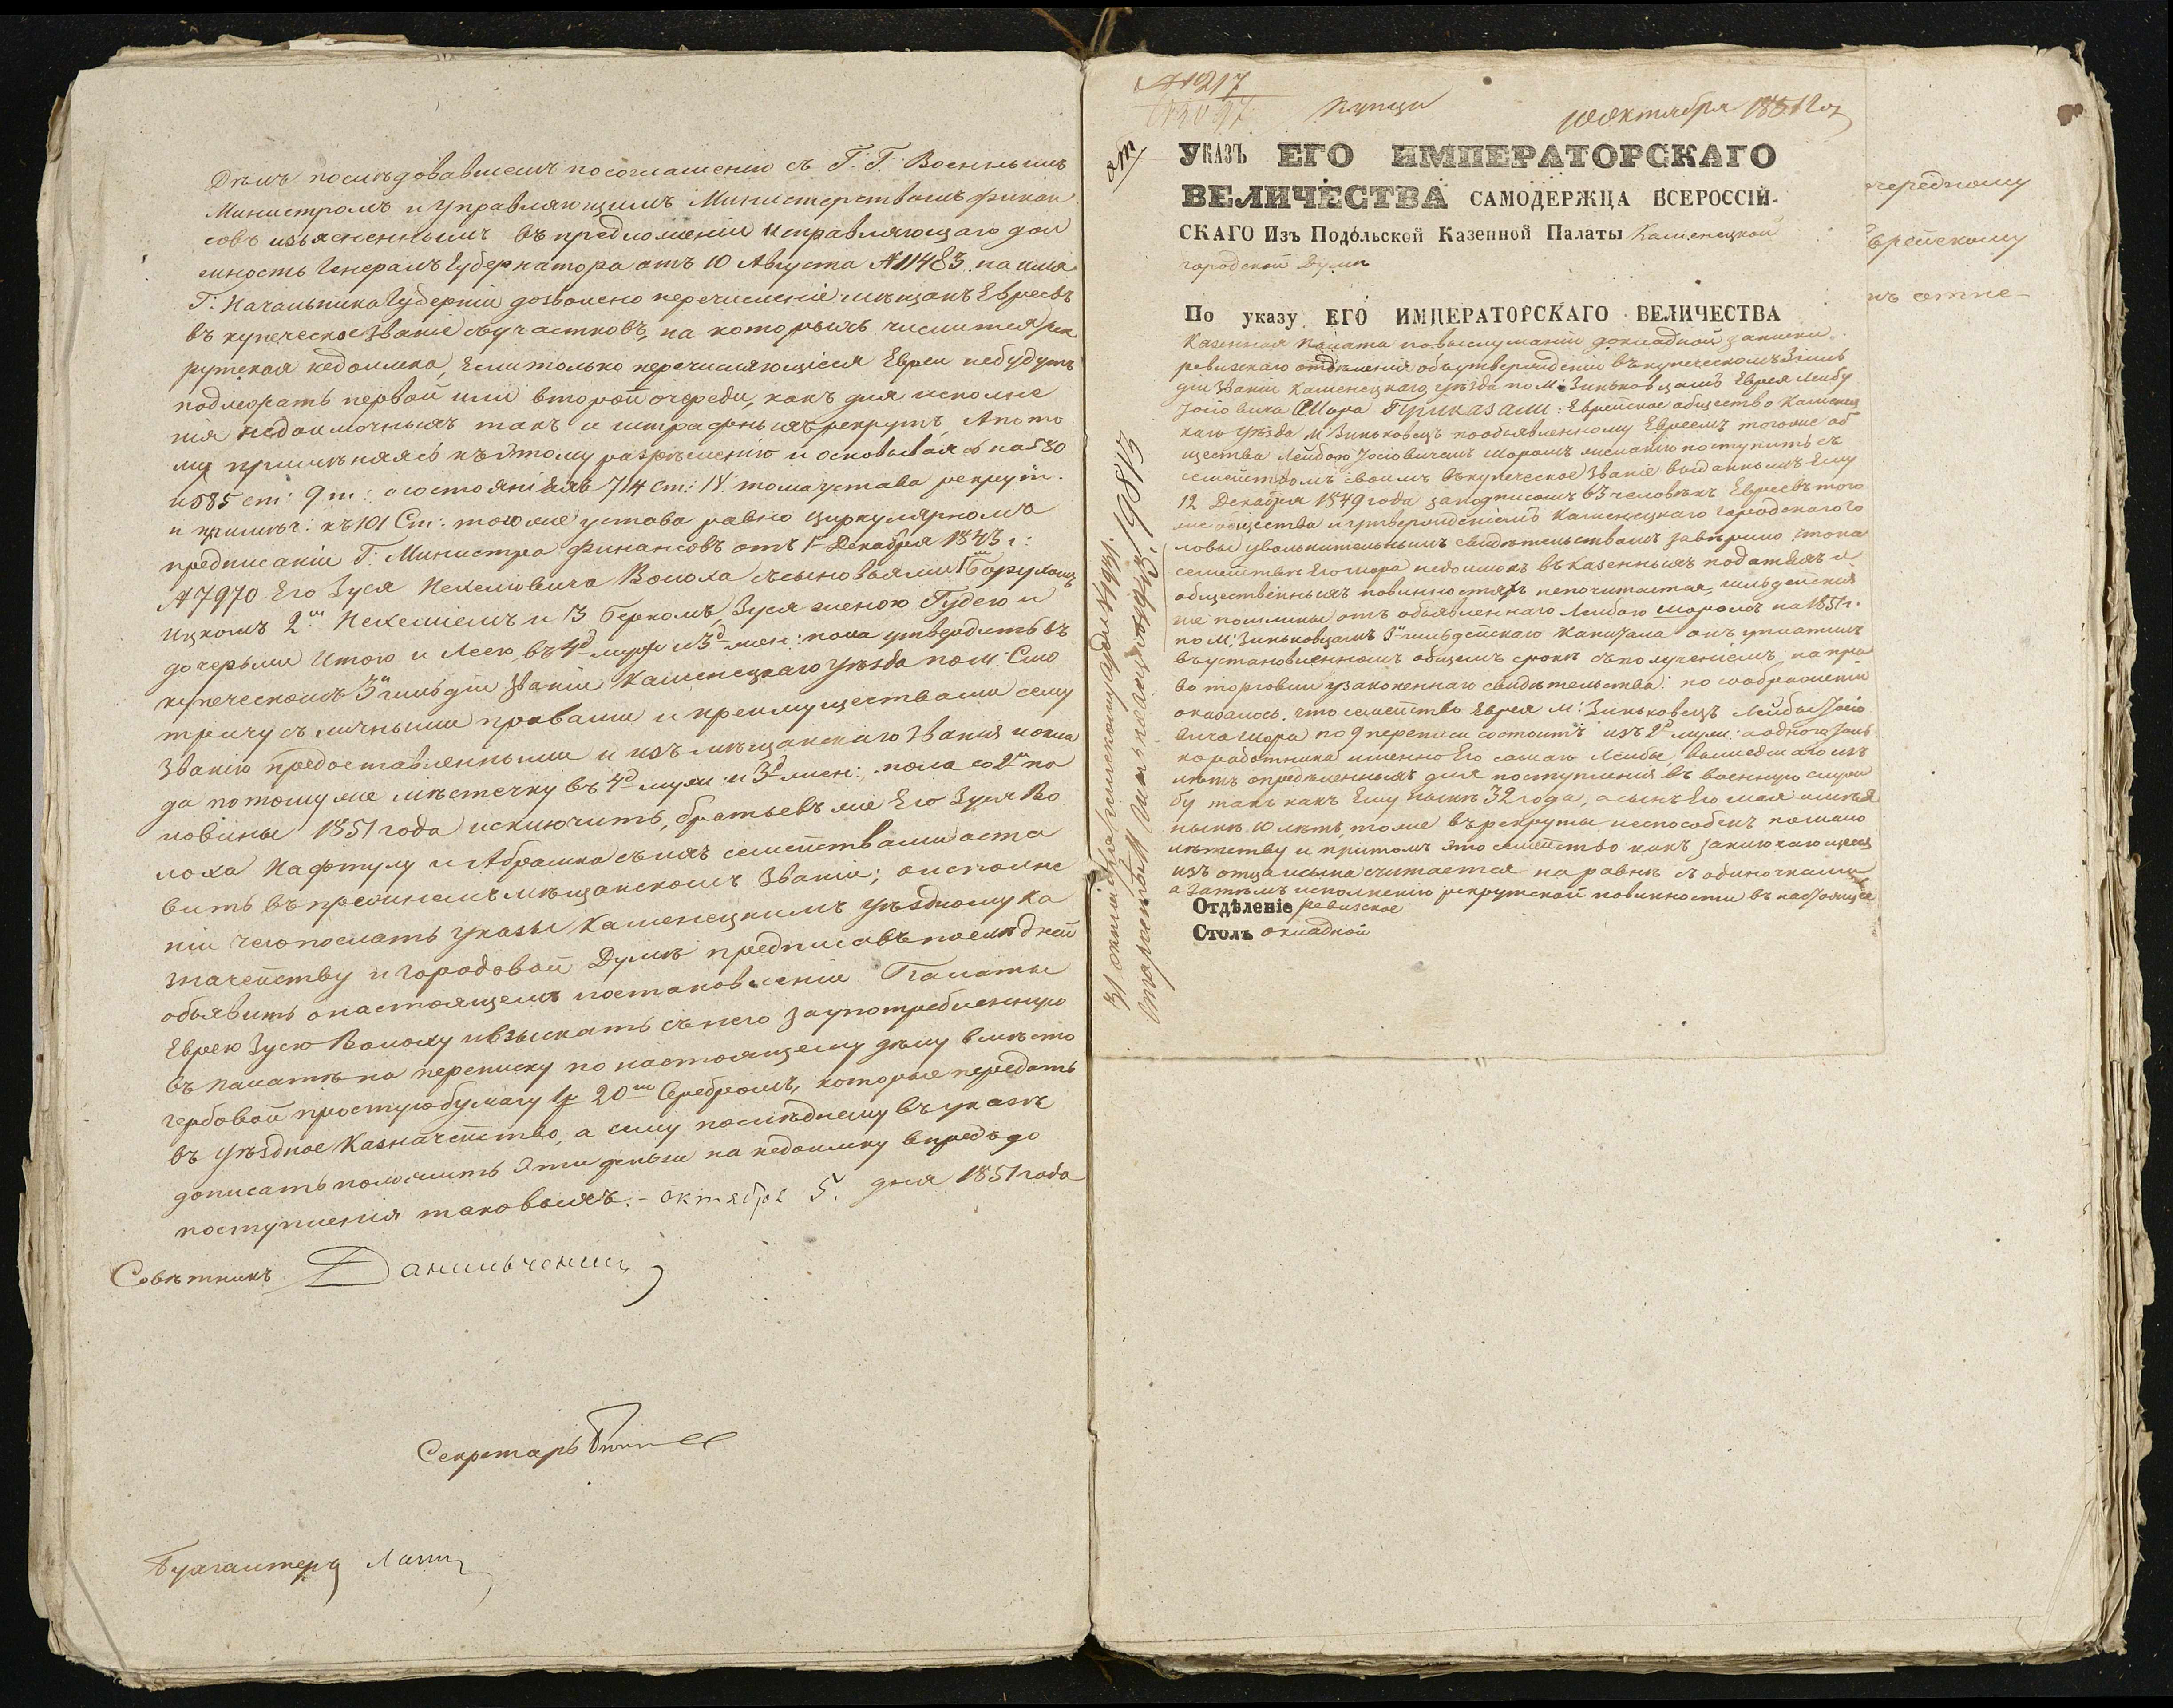 Дѣлъ послѣдовавшемъ по соглашенію съ Г. Г. Военнымъ
Министромъ и Управляющимъ Министерствомъ финан
совъ изъясненнымъ въ предложеніи исправляющаго дол
жность Генералъ Губернатора отъ 10 Августа №11483 на имя
Г: Начальника Губерніи дозволено перечисленіе мѣщанъ Евреевъ
въ купеческое званіе съ участковъ, на которыхъ числится рек
рутская недоимка, если только перечисляющіеся Евреи небудутъ
подлежать первой или второй очереди, какъ для исполне
нія недоимочныхъ такъ и штрафныхъ рекрутъ. А пото
му примѣняясь къ этому разрѣшенію и основываясь на 580
и 585 ст: 9 т: о состояніяхъ 714 ст: IV тома устава рекрут.
и примѣч: къ 101 Ст: того же устава равно циркулярномъ
предписаніи Г: Министра Финансовъ отъ 1 Декабря 1843 г:
№7970 Его Зуся Нехемовича Волоха съ сыновьями 1 Борухомъ
Ицкомъ 2мъ Нехеміемъ и 3 Беркомъ, Зуся женою Гудею и
дочерьми Итою и Леею, въ 4д муж и 3д жен: пола утвердить въ
купеческомъ 3й гильдіи званіи Каменецкаго уѣзда по м: Смо
тричу съ личными правами и преимуществами сему
званію предоставленными и изъ мѣщанскаго званія и окла
да по тому же мѣстечку въ 4д муж: и 3д жен: пола со 2й по
ловины 1851 года исключить, братьевъ же Его Зуся Во
лоха Нафтулу и Абрамка съ ихъ семействами оста
вить въ прежнемъ мѣщанскомъ званіи; о исполне
ніи чего послать указы Каменецкимъ уѣздному Ка
значейству и городовой Думѣ предписавъ послѣдней
объявить о настоящемъ постановленіи Палаты
Еврею Зусю Волоху и взыскать съ него за употребленную
въ палатѣ на переписку по настоящему дѣлу вмѣсто
гербовой простую бумагу 1р 20ко Серебромъ, которые передать
въ уѣздное Казначейство, а сему послѣднему въ указѣ
дописать положить эти деньги на недоимку впредь до
поступленія таковыхъ. - октября 5. дня 1851 года
Совѣтникъ Данильченко
Секретарь
Бухгалтеръ
№1217
Купцы
10 Октября 1851 год
УКАЗЪ ЕГО ИМПЕРАТОРСКАГО
ВЕЛИЧЕСТВА САМОДЕРЖЦА ВСЕРОССІЙ-
СКАГО Изъ Подольской Казенной Палаты Каменецкой
городской Думѣ
По указу ЕГО ИМПЕРАТОРСКАГО ВЕЛИЧЕСТВА
Казенная Палата по выслушаніи докладной записки
ревизскаго отдѣленія объ утвержденіи въ купеческомъ 3 гиль
діи званіи Каменецкаго уѣзда по м: Зиньковцамъ Еврея Лейбу
Іосіовича Шора Приказали: Еврейское общество Каменец
каго уѣзда м: Зиньковецъ по объявленному Евреемъ тогоже об
щества Лейбою Іосіовичемъ Шоромъ желанію поступить съ
семействомъ своимъ въ купеческое званіе выданнымъ Ему
12 Декабря 1849 года за подписомъ 63 человѣкъ Евреевъ того
же общества и утвержденіемъ Каменецкаго городскаго Го
ловы увольнительнымъ свидѣтельствомъ завѣрило, что на
семействѣ Его Шора недоимокъ въ казенныхъ податяхъ и
общественныхъ повинностяхъ непочитается, гильдейскія
же пошлины отъ объявленнаго Лейбою Шоромъ на 1851 г.
по м: Зиньковцамъ 3й гильдейскаго Капитала онъ уплатилъ
въ установленномъ общемъ срокѣ съ полученіемъ на пра
во торговли узаконеннаго свидѣтельства: по соображеніи
оказалось, что семейство Еврея м: Зиньковецъ Лейбы Іосіо
вича Шора по 9 переписи состоитъ изъ 2д муж: и одного толь
ко работника именно Его самаго Лейбы, вышедшаго изъ
лѣтъ опредѣленныхъ для поступленія въ военную служ
бу такъ какъ Ему нынѣ 32 года, а сынъ Его имѣя
нынѣ 10 лѣтъ, тоже въ рекруты неспособенъ по мало
лѣтству и притомъ это семейство какъ заключающееся
изъ отца и сына считается на равнѣ съ одиночками
а затѣмъ исполненію рекрутской повинности въ настояще
Отдѣленіе ревизское
Столъ окладной
очередному
Еврейскому